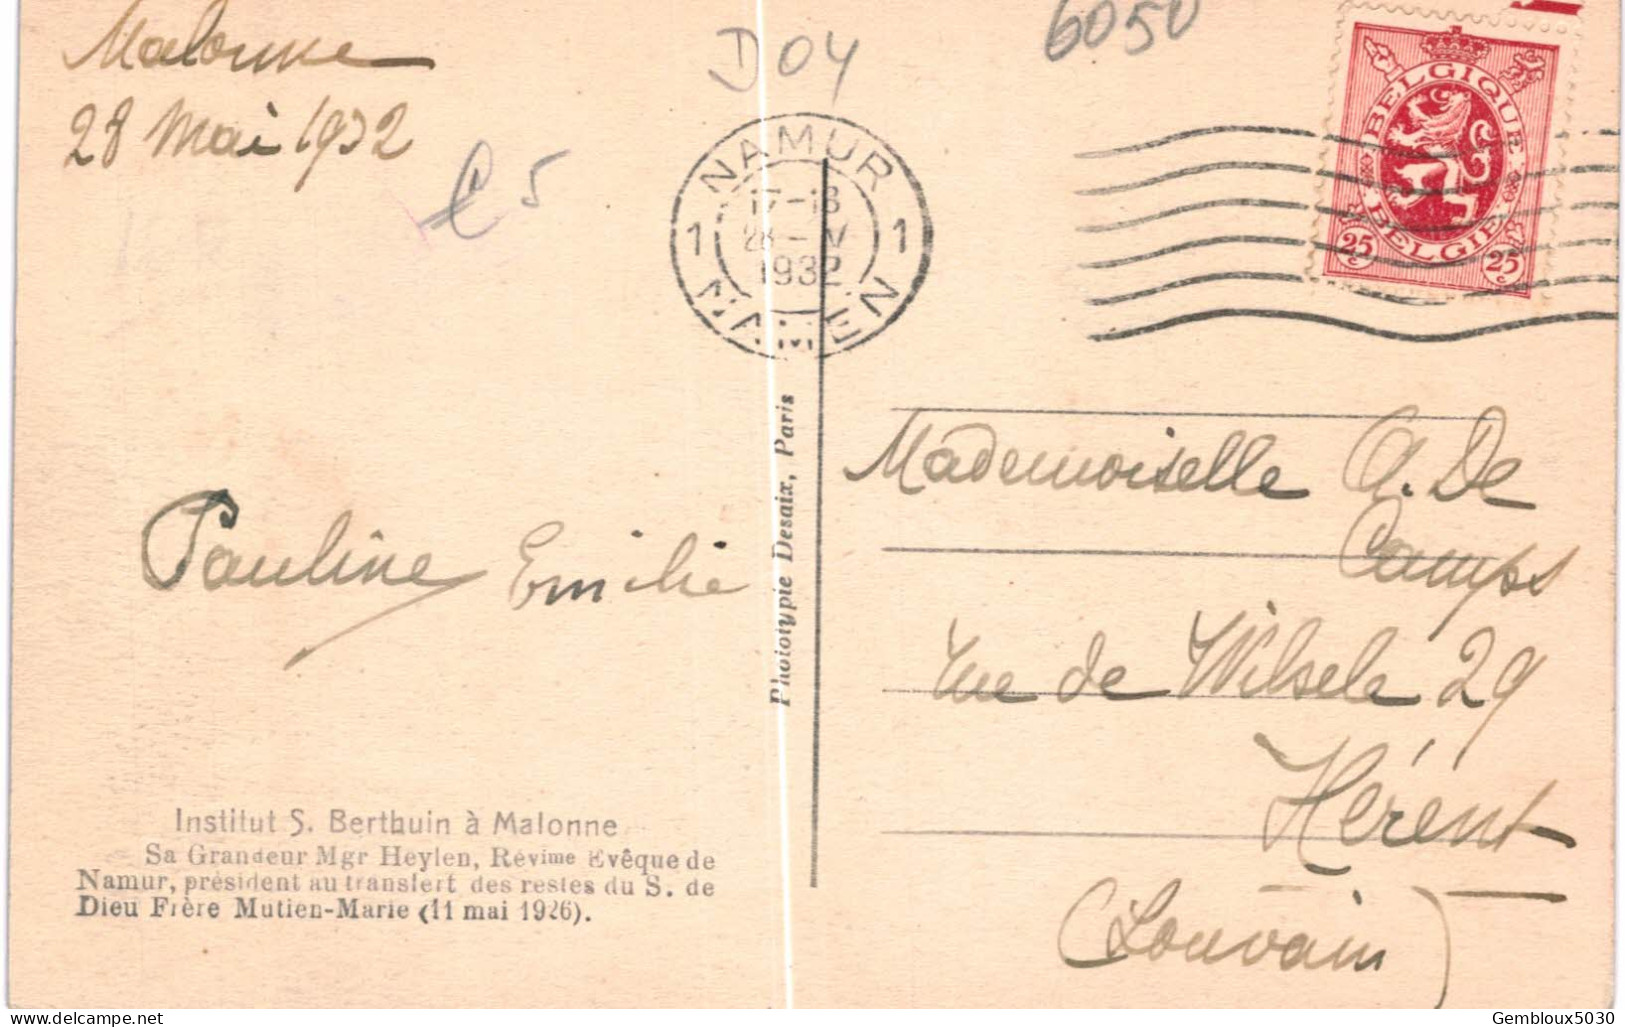 Malonne
28 Mai 1932
D04
6050
€5
NAMUR
1 17-18 1
28-V
1932
NAMEN
BELGIQUE
BELGIE
25c 25c
Pauline Emilie
Phototypie Desaix, Paris
Mademoiselle A. De
Camps
rue de Wilsele 29
Hérent
(Louvain)
Institut S. Berthuin à Malonne
Sa Grandeur Mgr Heylen, Révime Evêque de
Namur, président au transfert des restes du S. de
Dieu Frère Mutien-Marie (11 mai 1926).
delcampe.net
Gembloux5030